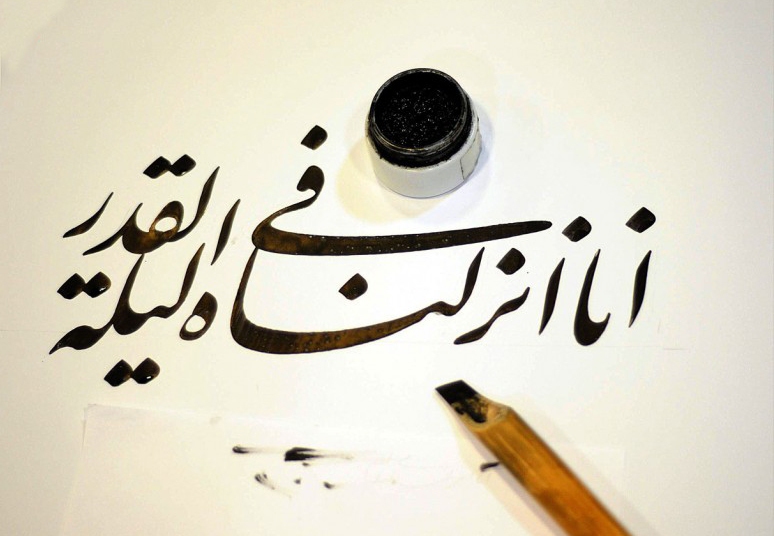 انا انزلناه فی لیلة القدر